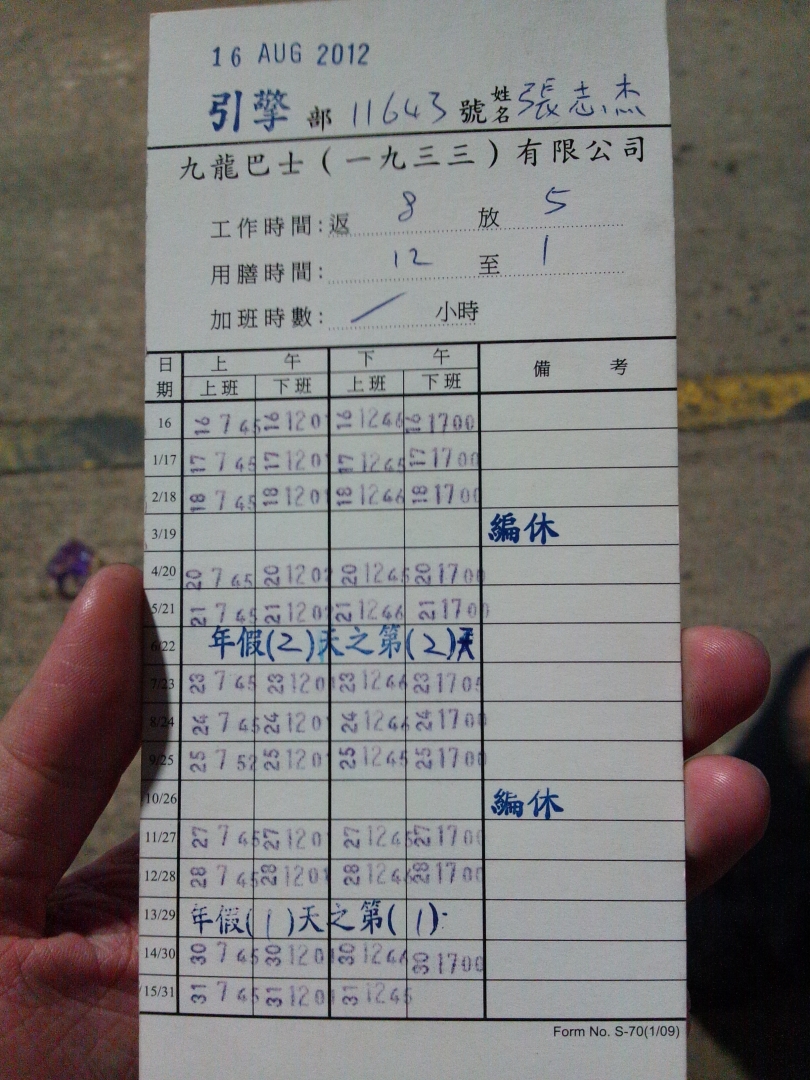 16 AUG 2012
引擎 部 11643 號 姓名 張志杰
九龍巴士(一九三三)有限公司
工作時間:返 8 放 5
用膳時間: 12 至 1
加班時數: / 小時
日期 上午 下午 備考
上班 下班 上班 下班
16 16 7 45 16 1201 16 1246 16 1700
1/17 17 7 45 17 1201 17 1245 17 1700
2/18 18 7 45 18 1201 18 1246 18 1700
3/19 編休
4/20 20 7 45 20 1202 20 1245 20 1700
5/21 21 7 45 21 1202 21 1246 21 1700
6/22 年假(2)天之第(2)天
7/23 23 7 45 23 1201 23 1246 23 1705
8/24 24 7 45 24 1201 24 1246 24 1700
9/25 25 7 52 25 1201 25 1245 25 1700
10/26 編休
11/27 27 7 45 27 1201 27 1245 27 1700
12/28 28 7 45 28 1201 28 1246 28 1700
13/29 年假(1)天之第(1)
14/30 30 7 45 30 1201 30 1246 30 1700
15/31 31 7 45 31 1201 31 1245
Form No. S-70(1/09)